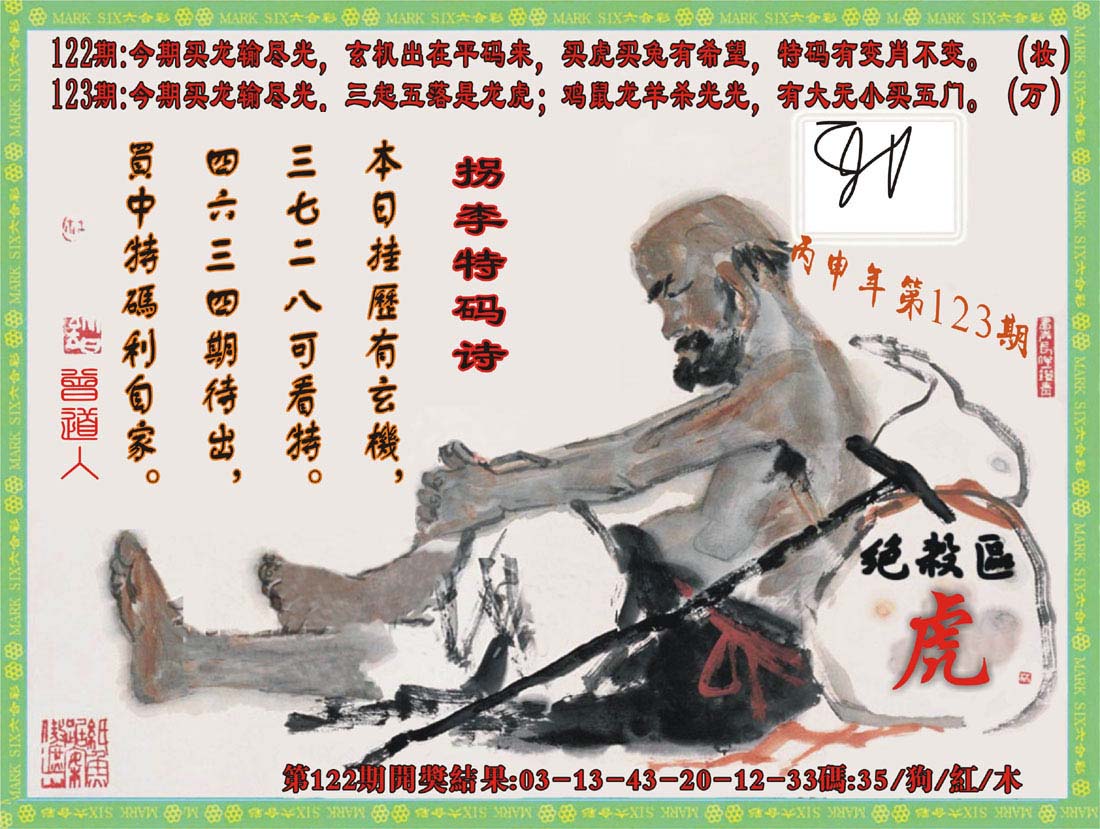 MARK SIX六合彩
122期:今期买龙输尽光，玄机出在平码来，买虎买兔有希望，特码有变肖不变。 (妆)
123期:今期买龙输尽光．三起五落是龙虎；鸡鼠龙羊杀光光，有大无小买五门。 (万)
拐李特码诗
本日挂歷有玄機，
三七二八可看特。
四六三四期待出，
買中特碼利自家。
曾道人
丙申年第123期
绝殺區
虎
第122期開獎結果:03-13-43-20-12-33碼:35/狗/紅/木